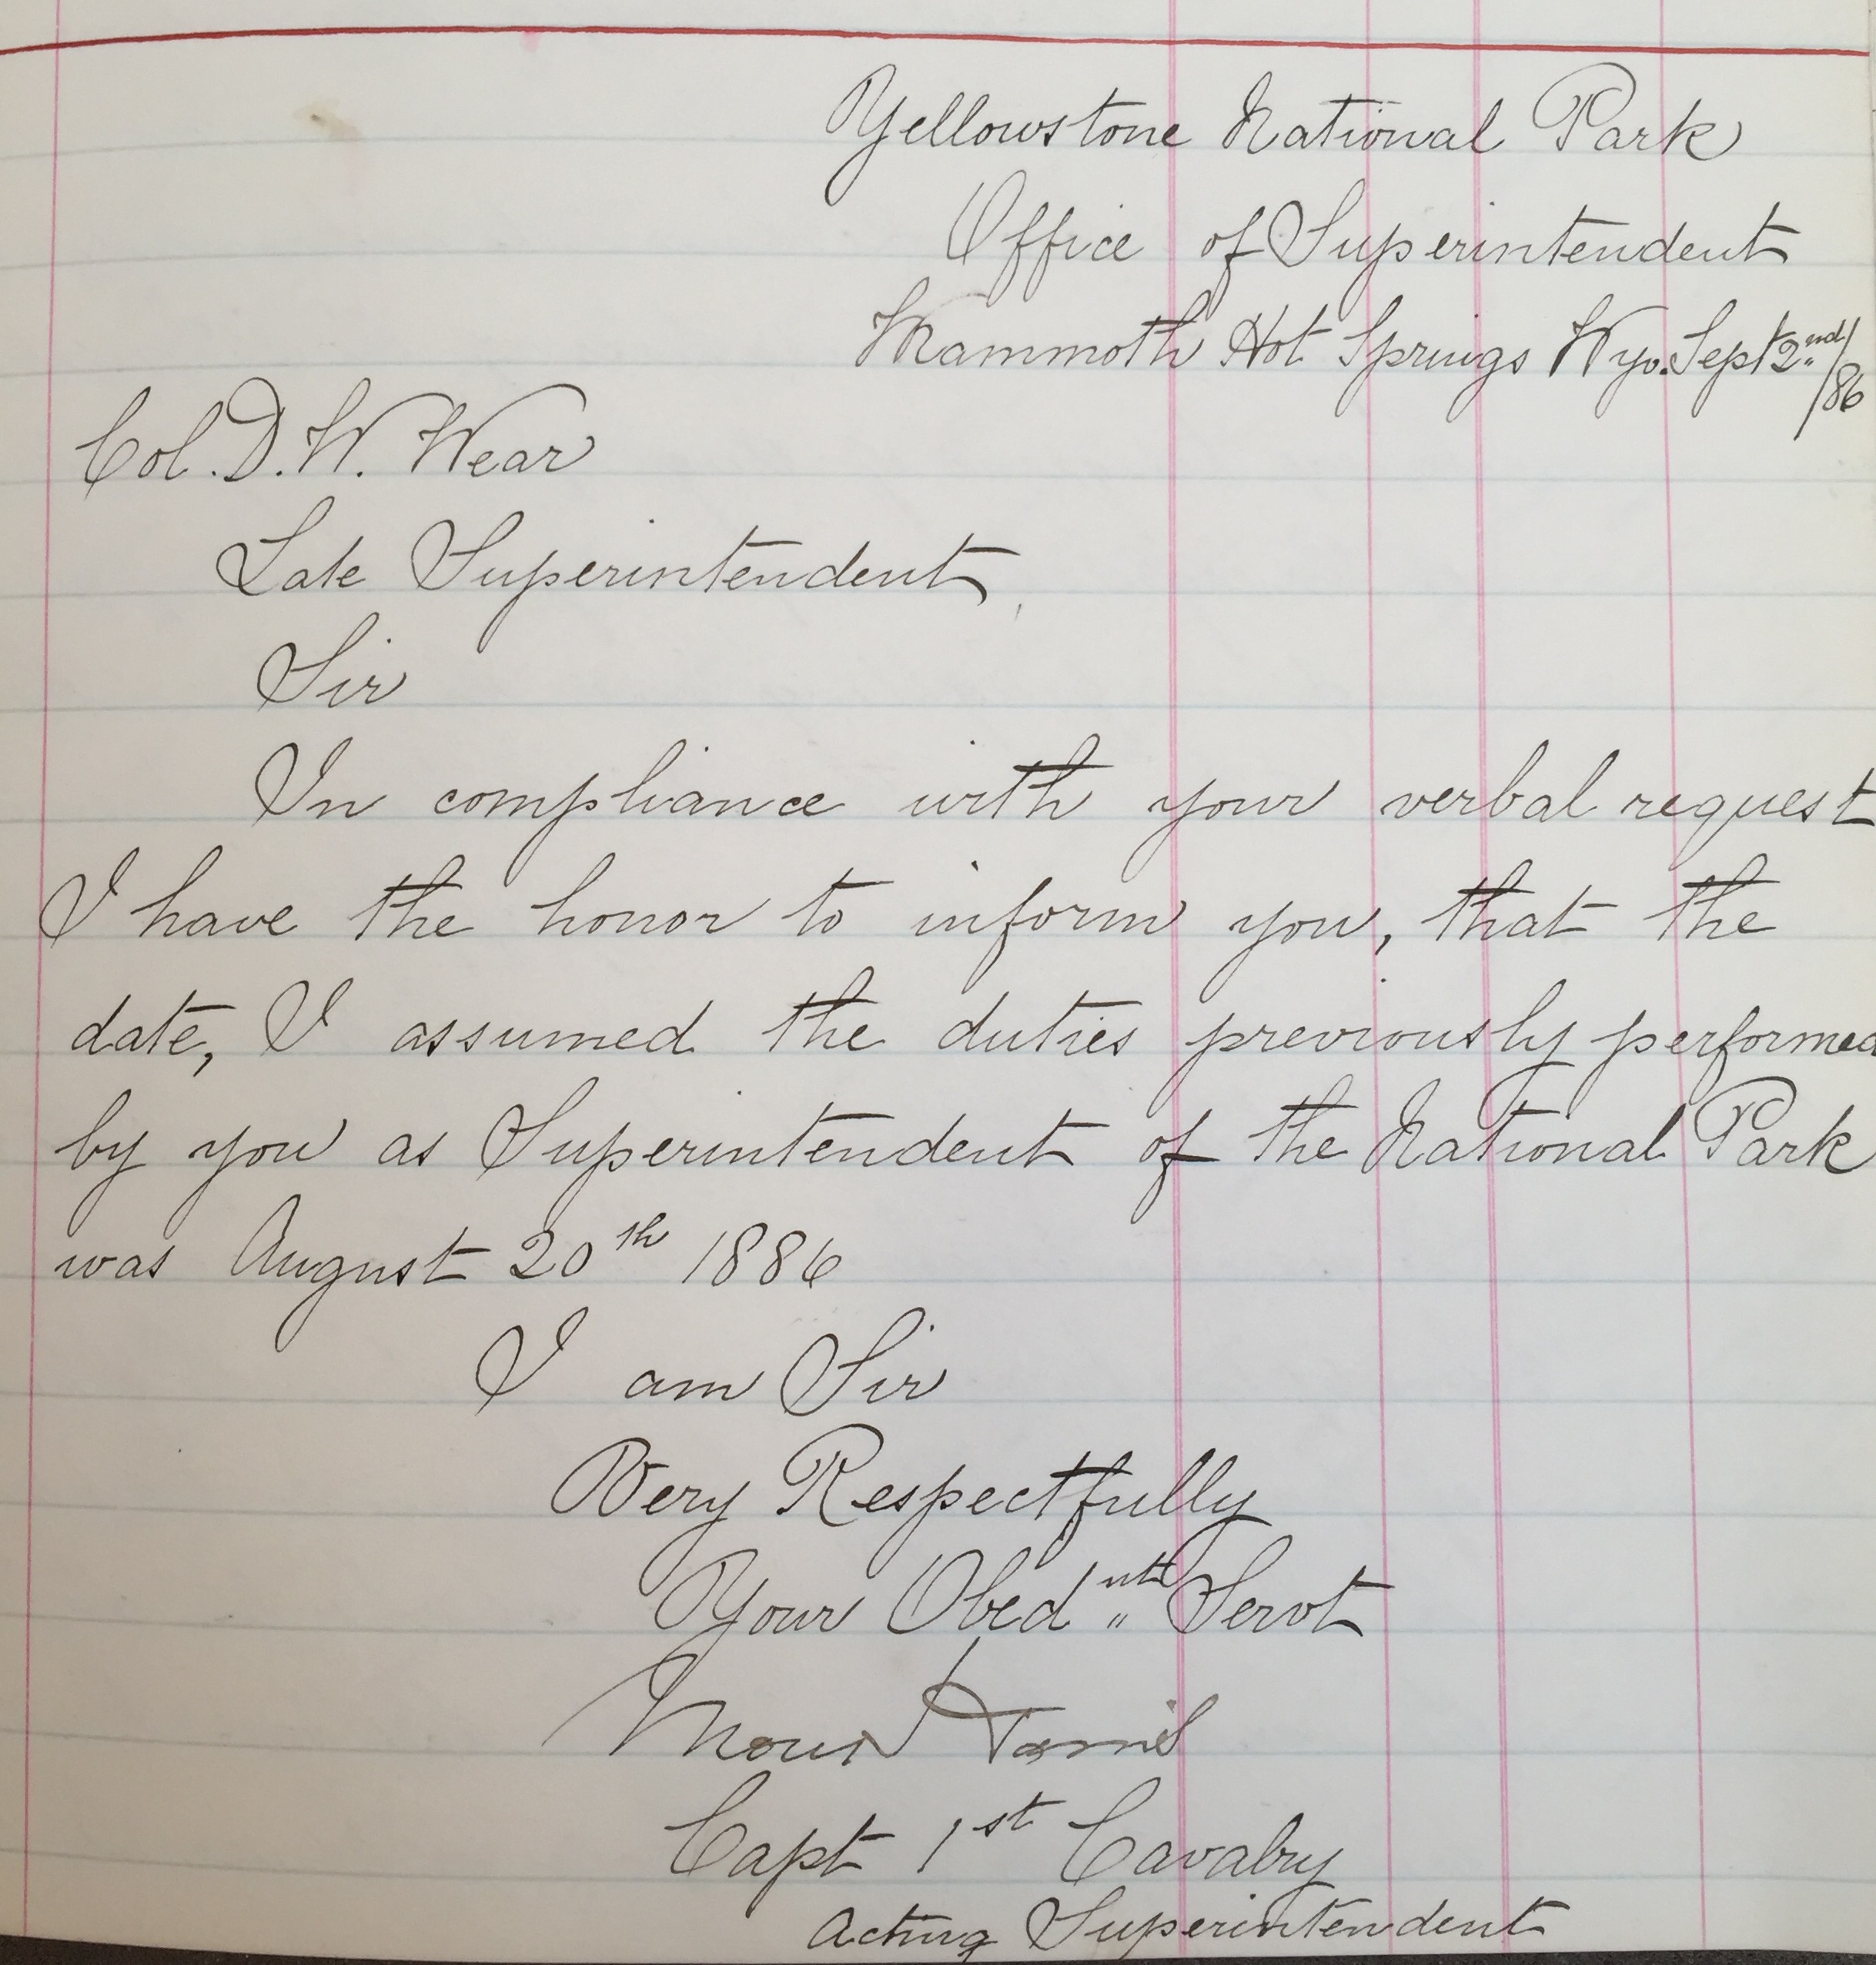 Yellowstone National Park
Office of Superintendent
Mammoth Hot Springs Wyo. Sept 2nd/86
Col. D. W. Wear
Late Superintendent,
Sir
In compliance with your verbal request
I have the honor to inform you, that the
date, I assumed the duties previously performed
by you as Superintendent of the National Park
was August 20th 1886
I am Sir
Very Respectfully
Your Obednt Servt
Moses Harris
Capt 1st Cavalry
Acting Superintendent